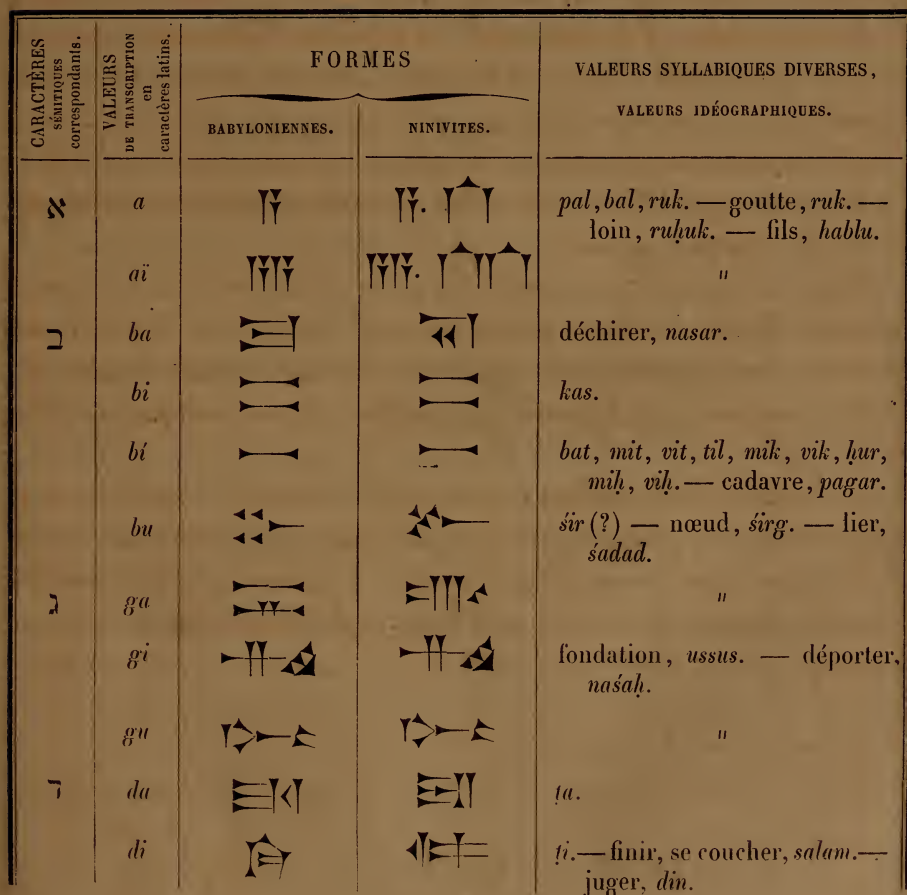 CARACTÈRES
SÉMITIQUES
correspondants.
VALEURS
DE TRANSCRIPTION
en
caractères latins.
FORMES
BABYLONIENNES.
NINIVITES.
VALEURS SYLLABIQUES DIVERSES,
VALEURS IDÉOGRAPHIQUES.
א a 𒀀 𒀀. pal, bal, ruk. — goutte, ruk. —
loin, ruḥuk. — fils, hablu.
aï 𒀀𒀀 𒀀𒀀. "
ב ba 𒁀 𒁀 déchirer, nasar.
bi kas.
bí 𒁁 𒁁 bat, mit, vit, til, mik, vik, ḫur,
miḫ, viḫ. — cadavre, pagar.
bu 𒁍 𒁍 śir (?) — nœud, śirg. — lier,
śadad.
ג ga 𒂵 𒂵 "
gi 𒄀 𒄀 fondation, ussus. — déporter,
naśaḥ.
gu 𒄖 𒄖 "
ד da 𒁕 𒁕 ṭa.
di 𒁲 𒁲 ṭi. — finir, se coucher, salam. —
juger, din.